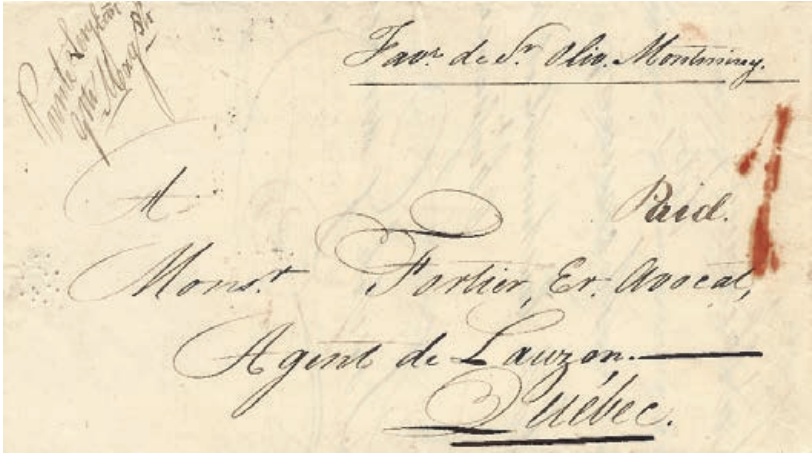 Pointe Levy
Favr. de Sr. Oliv. Montminy.
1
A
Paid.
Monsr. Fortier, Er. Avocat,
Agent de Lauzon.
Québec.